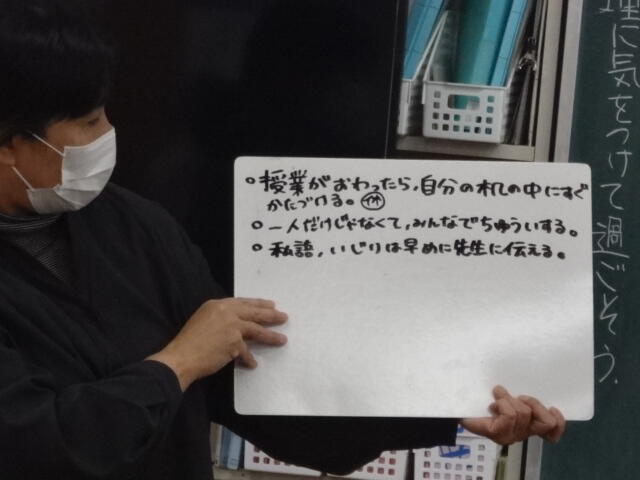 。授業がおわったら、自分の机の中にすぐ
かたづける。㊡
。一人だけじゃなくて、みんなでちゅういする。
。私語、いじりは早めに先生に伝える。
理に気をつけて過ごそう.